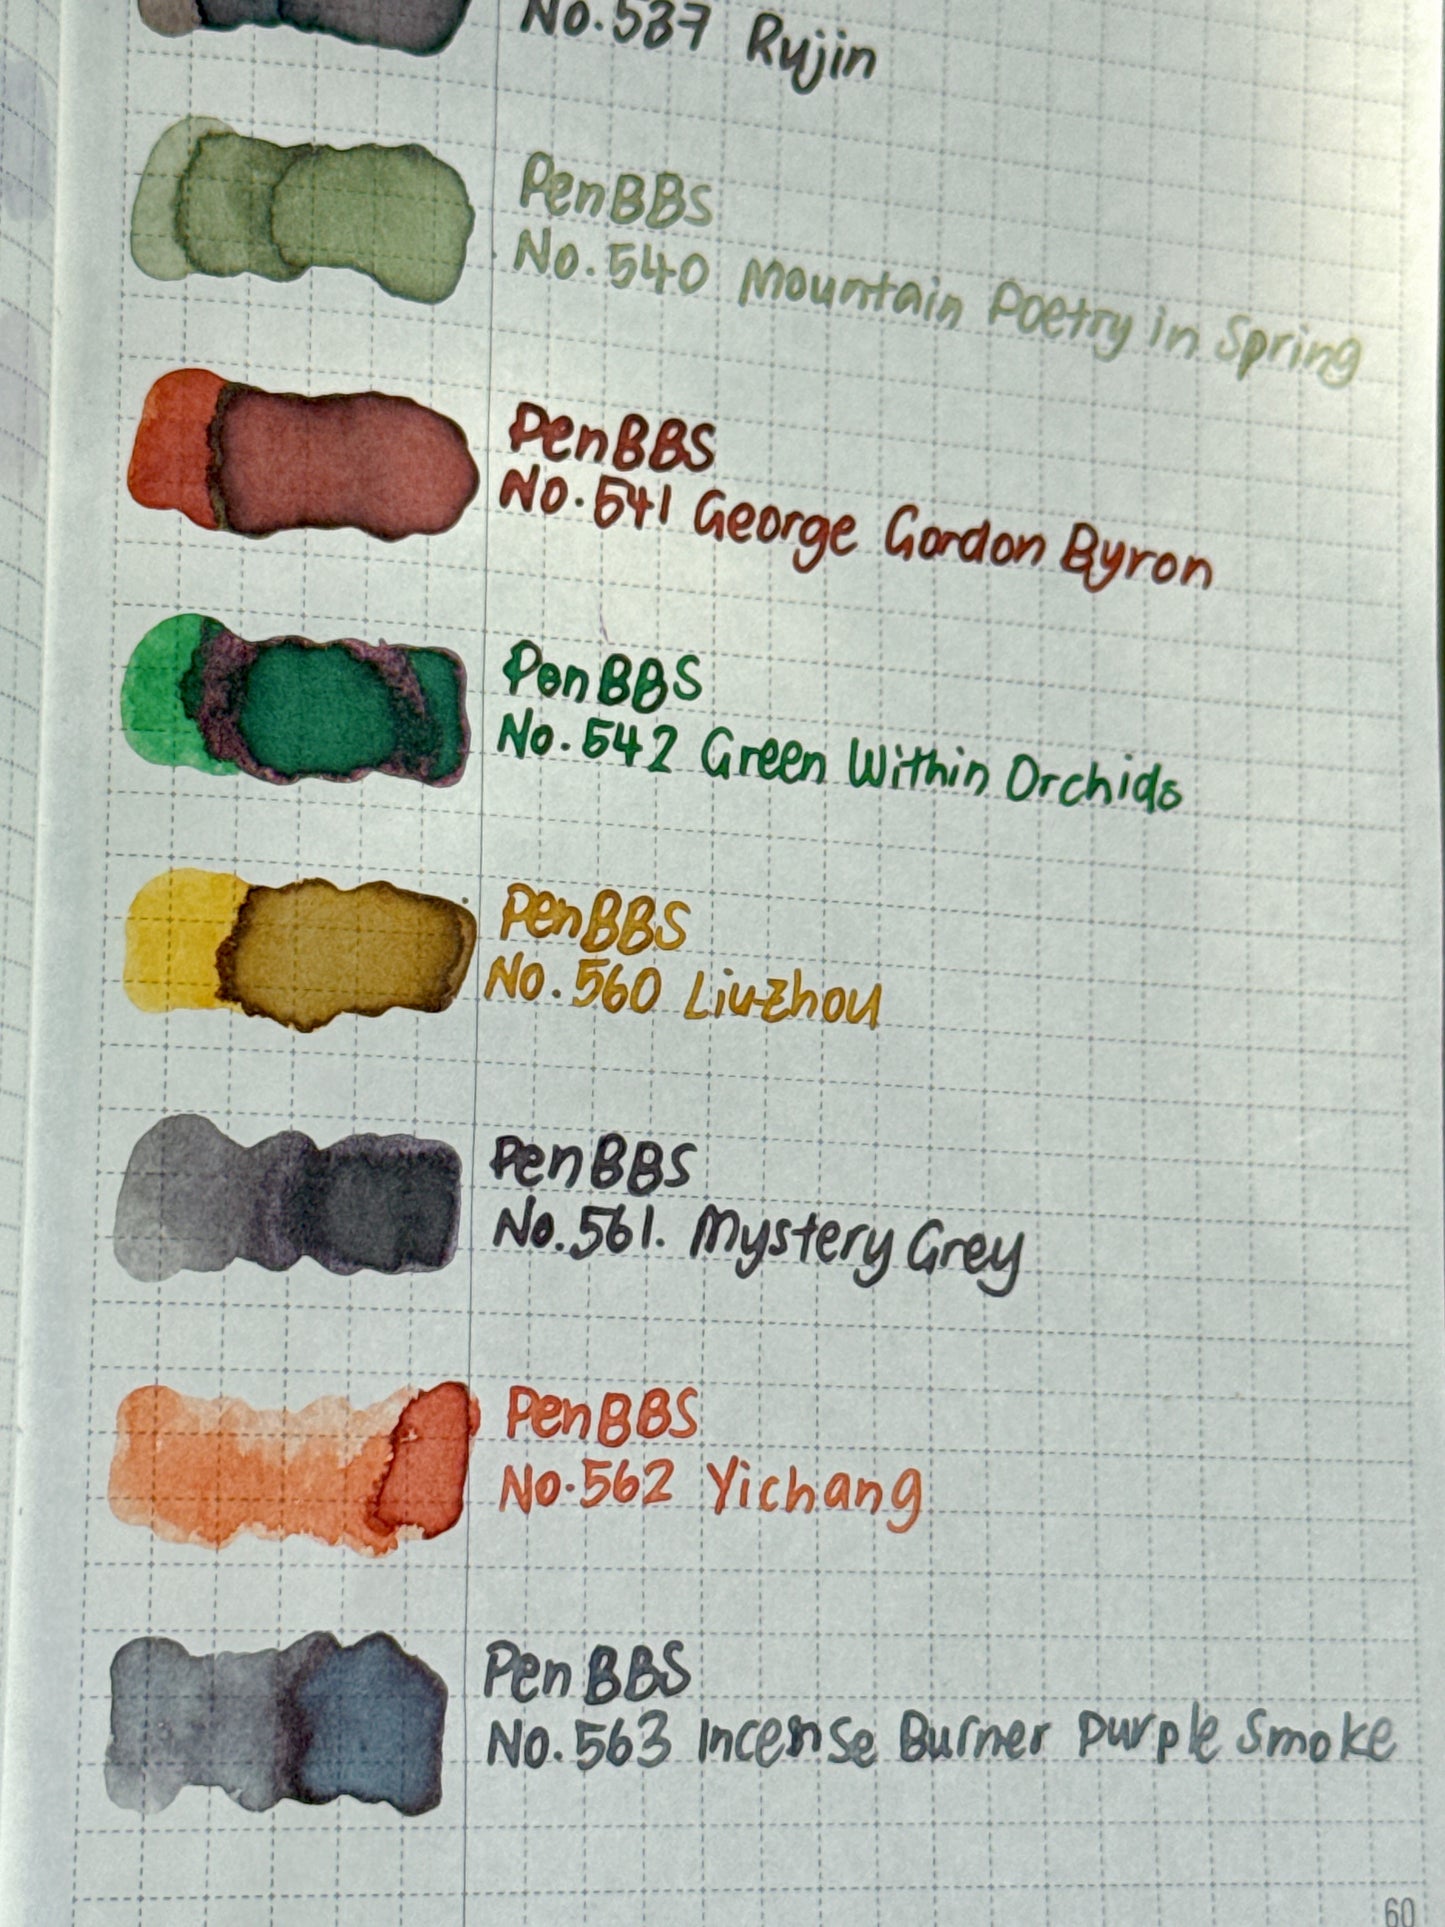 No.537 Ryjin
PenBBS
No.540 Mountain Poetry in Spring
PenBBS
No.541 George Gordon Byron
PenBBS
No.542 Green Within Orchids
PenBBS
No.560 Liuzhou
PenBBS
No.561. Mystery Grey
PenBBS
No.562 Yichang
PenBBS
No.563 Incense Burner Purple Smoke
60